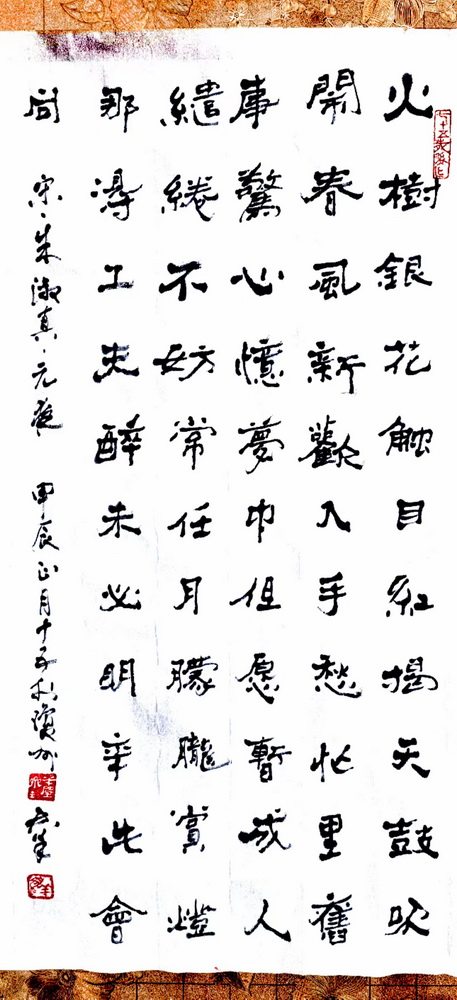 火樹銀花触目紅揭天鼓吹
開春風新歡入手愁忙里舊
事驚心憶夢中但愿暫成人
繾綣不妨常任月朦朧賞燈
那得工夫醉未必明年此會
同 宋、朱淑真、元夜 甲辰正月十五於瓊州